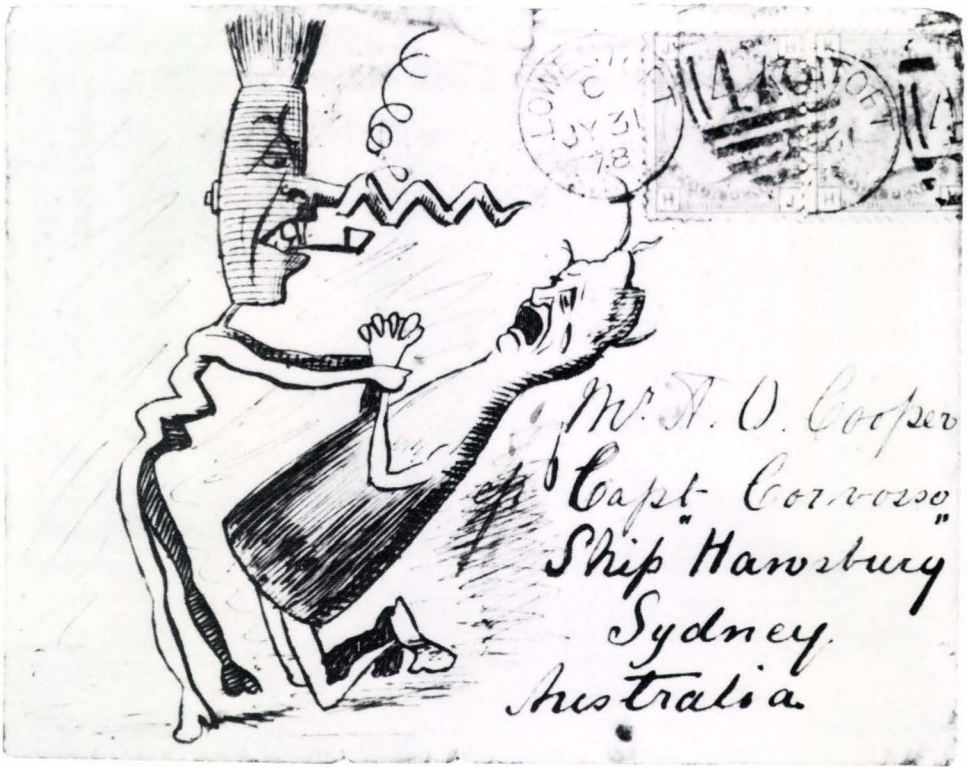 LOWESTOFT
C
JY 31
78
Mr. A. O. Cooper
c/o Capt Corvosso
Ship "Hawsbury"
Sydney.
Australia.